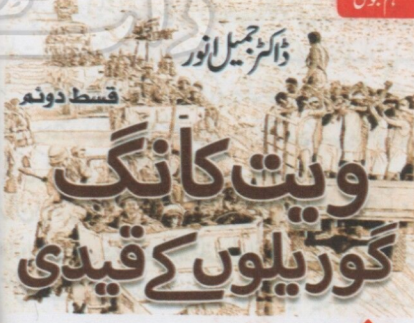 ڈاکٹر جمیل انور
قسط دوئم
ویت کانگ
گوریلوں کے قیدی